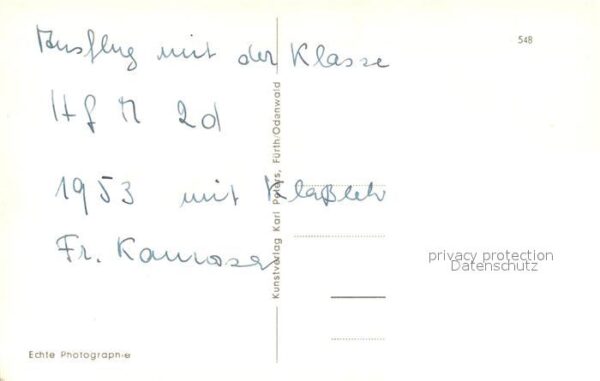 Ausflug mit der Klasse
Hf M 2d
1953 mit Klaßleh
Fr.
548
Kunstverlag Karl Peters, Fürth/Odenwald
privacy protection
Datenschutz
Echte Photographie